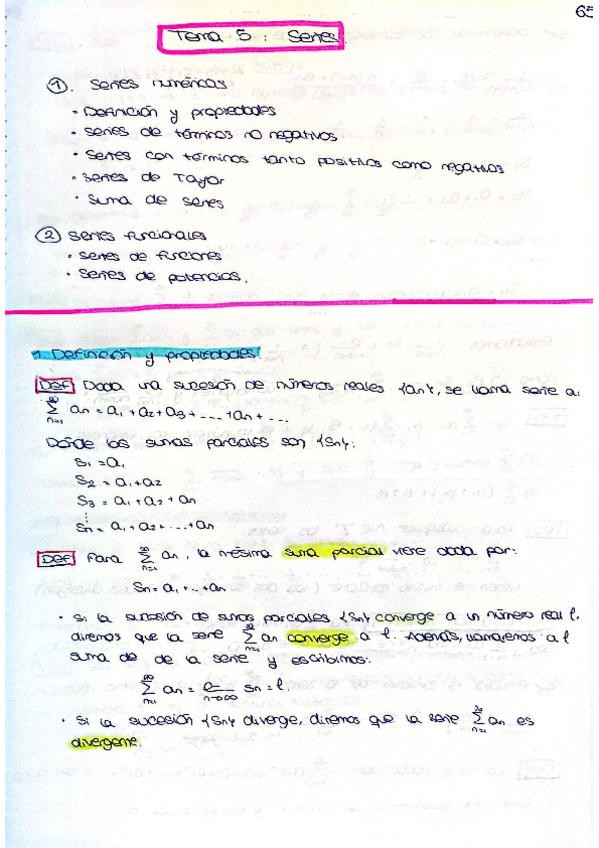 65
Tema 5: Series
1. Series numéricas
· Definición y propiedades
· Series de términos no negativos
· Series con términos tanto positivos como negativos
· Series de Taylor
· Suma de series
2 Series funcionales
· Series de funciones
· Series de potencias.
1. Definición y propiedades.
Def Dada una sucesión de números reales {an}, se llama serie a:
∞∑n=1 an = a1 + a2 + a3 + ... + an + ...
Donde las sumas parciales son {Sn}:
S1 = a1
S2 = a1 + a2
S3 = a1 + a2 + an
⋮
Sn = a1 + a2 + ... + an
Def Para ∞∑n=1 an, la nésima suma parcial viene dada por:
Sn = a1 + ... + an
· Si la sucesión de sumas parciales {Sn} converge a un número real l.
diremos que la serie ∞∑n=1 an converge a l. Además, llamaremos a l
suma de de la serie y escribimos:
∞∑n=1 an = lim n→∞ Sn = l.
· Si la sucesión {Sn} diverge, diremos que la serie ∞∑n=1 an es
divergente.